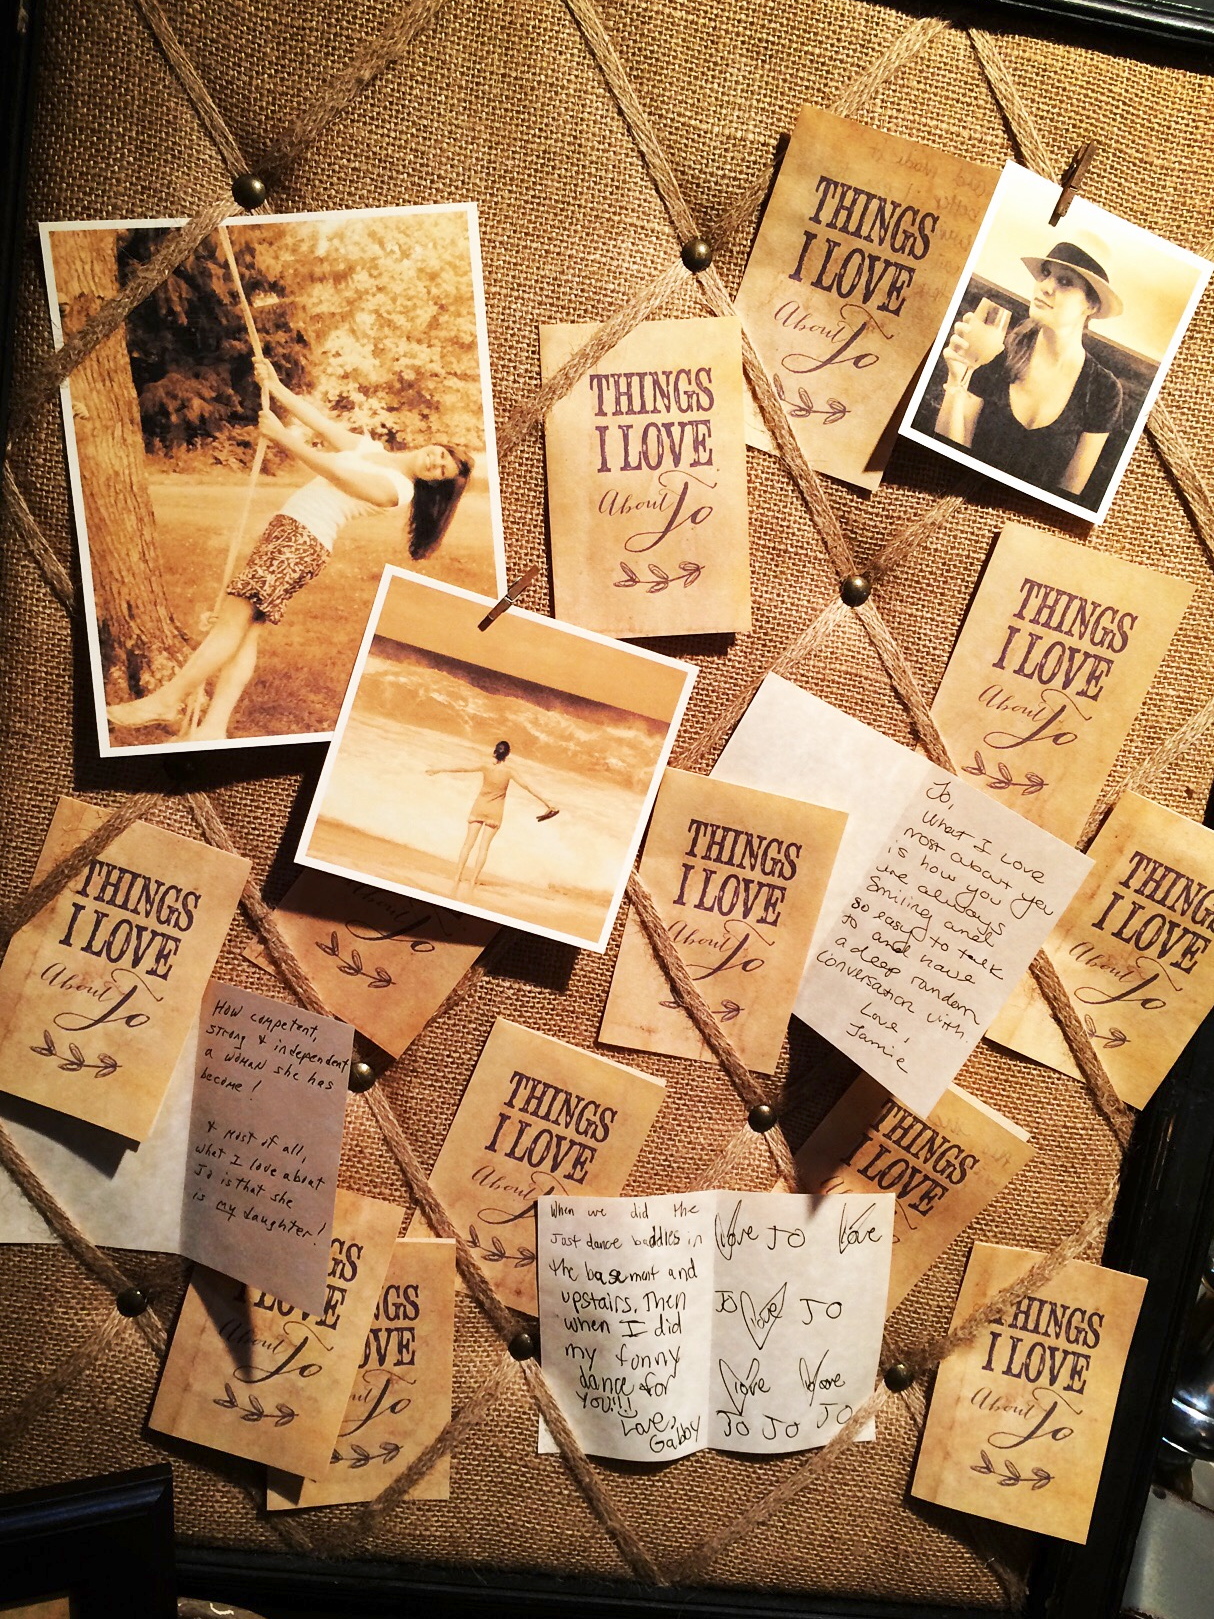 THINGS
I LOVE
About Jo
THINGS
I LOVE
About Jo
THINGS
I LOVE
About Jo
Jo,
What I Love
most about you
is how you you
are always
smiling and
so easy to talk
to and have
a deep random
conversation with.
Love,
Jamie
THINGS
I LOVE
About Jo
THINGS
I LOVE
About Jo
THINGS
I LOVE
About Jo
About Jo
How competent,
strong & independent
a woman she has
become!
& Most of all,
what I love about
Jo is that she
is my daughter!
THINGS
I LOVE
About
THINGS
I LOVE
When we did the
Just dance baddles in
the basemant and
upstairs. Then
when I did
my funny
dance for
YOU!!!
Love,
Gabby
love JO love
JO love JO
love love
JO JO JO
GS
I LOVE
About Jo
NGS
OVE
Jo
THINGS
I LOVE
About Jo